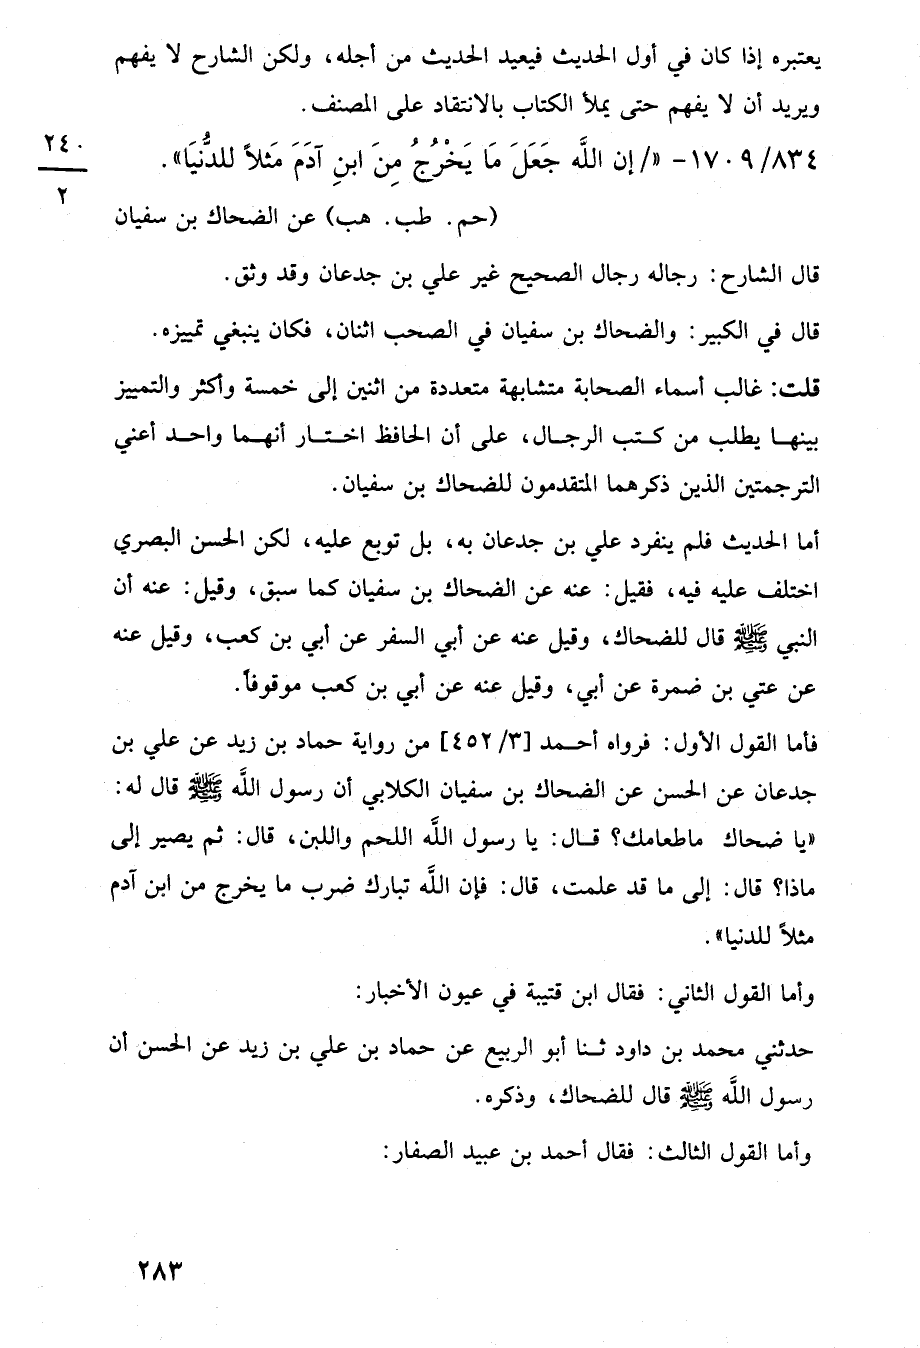 يعتبره إذا كان في أول الحديث فيعيد الحديث من أجله، ولكن الشارح لا يفهم
ويريد أن لا يفهم حتى يملأ الكتاب بالانتقاد على المصنف.
٢٤٠
٢
٨٣٤/ ١٧٠٩- «/ إن اللَّه جَعَلَ مَا يَخْرُجُ مِنَ ابنِ آدَمَ مَثلاً للدُّنيَا».
(حم. طب. هب) عن الضحاك بن سفيان
قال الشارح: رجاله رجال الصحيح غير علي بن جدعان وقد وثق.
قال في الكبير: والضحاك بن سفيان في الصحب اثنان، فكان ينبغي تمييزه.
قلت: غالب أسماء الصحابة متشابهة متعددة من اثنين إلى خمسة وأكثر والتمييز
بينهـا يطلب من كـتب الرجـال، على أن الحافظ اخـتـار أنهـما واحـد أعني
الترجمتين الذين ذكرهما المتقدمون للضحاك بن سفيان.
أما الحديث فلم ينفرد علي بن جدعان به، بل توبع عليه، لكن الحسن البصري
اختلف عليه فيه، فقيل: عنه عن الضحاك بن سفيان كما سبق، وقيل: عنه أن
النبي ﷺ قال للضحاك، وقيل عنه عن أبي السفر عن أبي بن كعب، وقيل عنه
عن عتي بن ضمرة عن أبي، وقيل عنه عن أبي بن كعب موقوفاً.
فأما القول الأول: فرواه أحـمد [٣/ ٤٥٢] من رواية حماد بن زيد عن علي بن
جدعان عن الحسن عن الضحاك بن سفيان الكلابي أن رسول اللَّه ﷺ قال له:
«يا ضحاك ماطعامك؟ قـال: يا رسول اللَّه اللحم واللبن، قال: ثم يصير إلى
ماذا؟ قال: إلى ما قد علمت، قال: فإن اللَّه تبارك ضرب ما يخرج من ابن آدم
مثلاً للدنيا».
وأما القول الثاني: فقال ابن قتيبة في عيون الأخبار:
حدثني محمد بن داود ثـنا أبو الربيع عن حماد بن علي بن زيد عن الحسن أن
رسول اللَّه ﷺ قال للضحاك، وذكره.
وأما القول الثالث: فقال أحمد بن عبيد الصفار:
٢٨٣